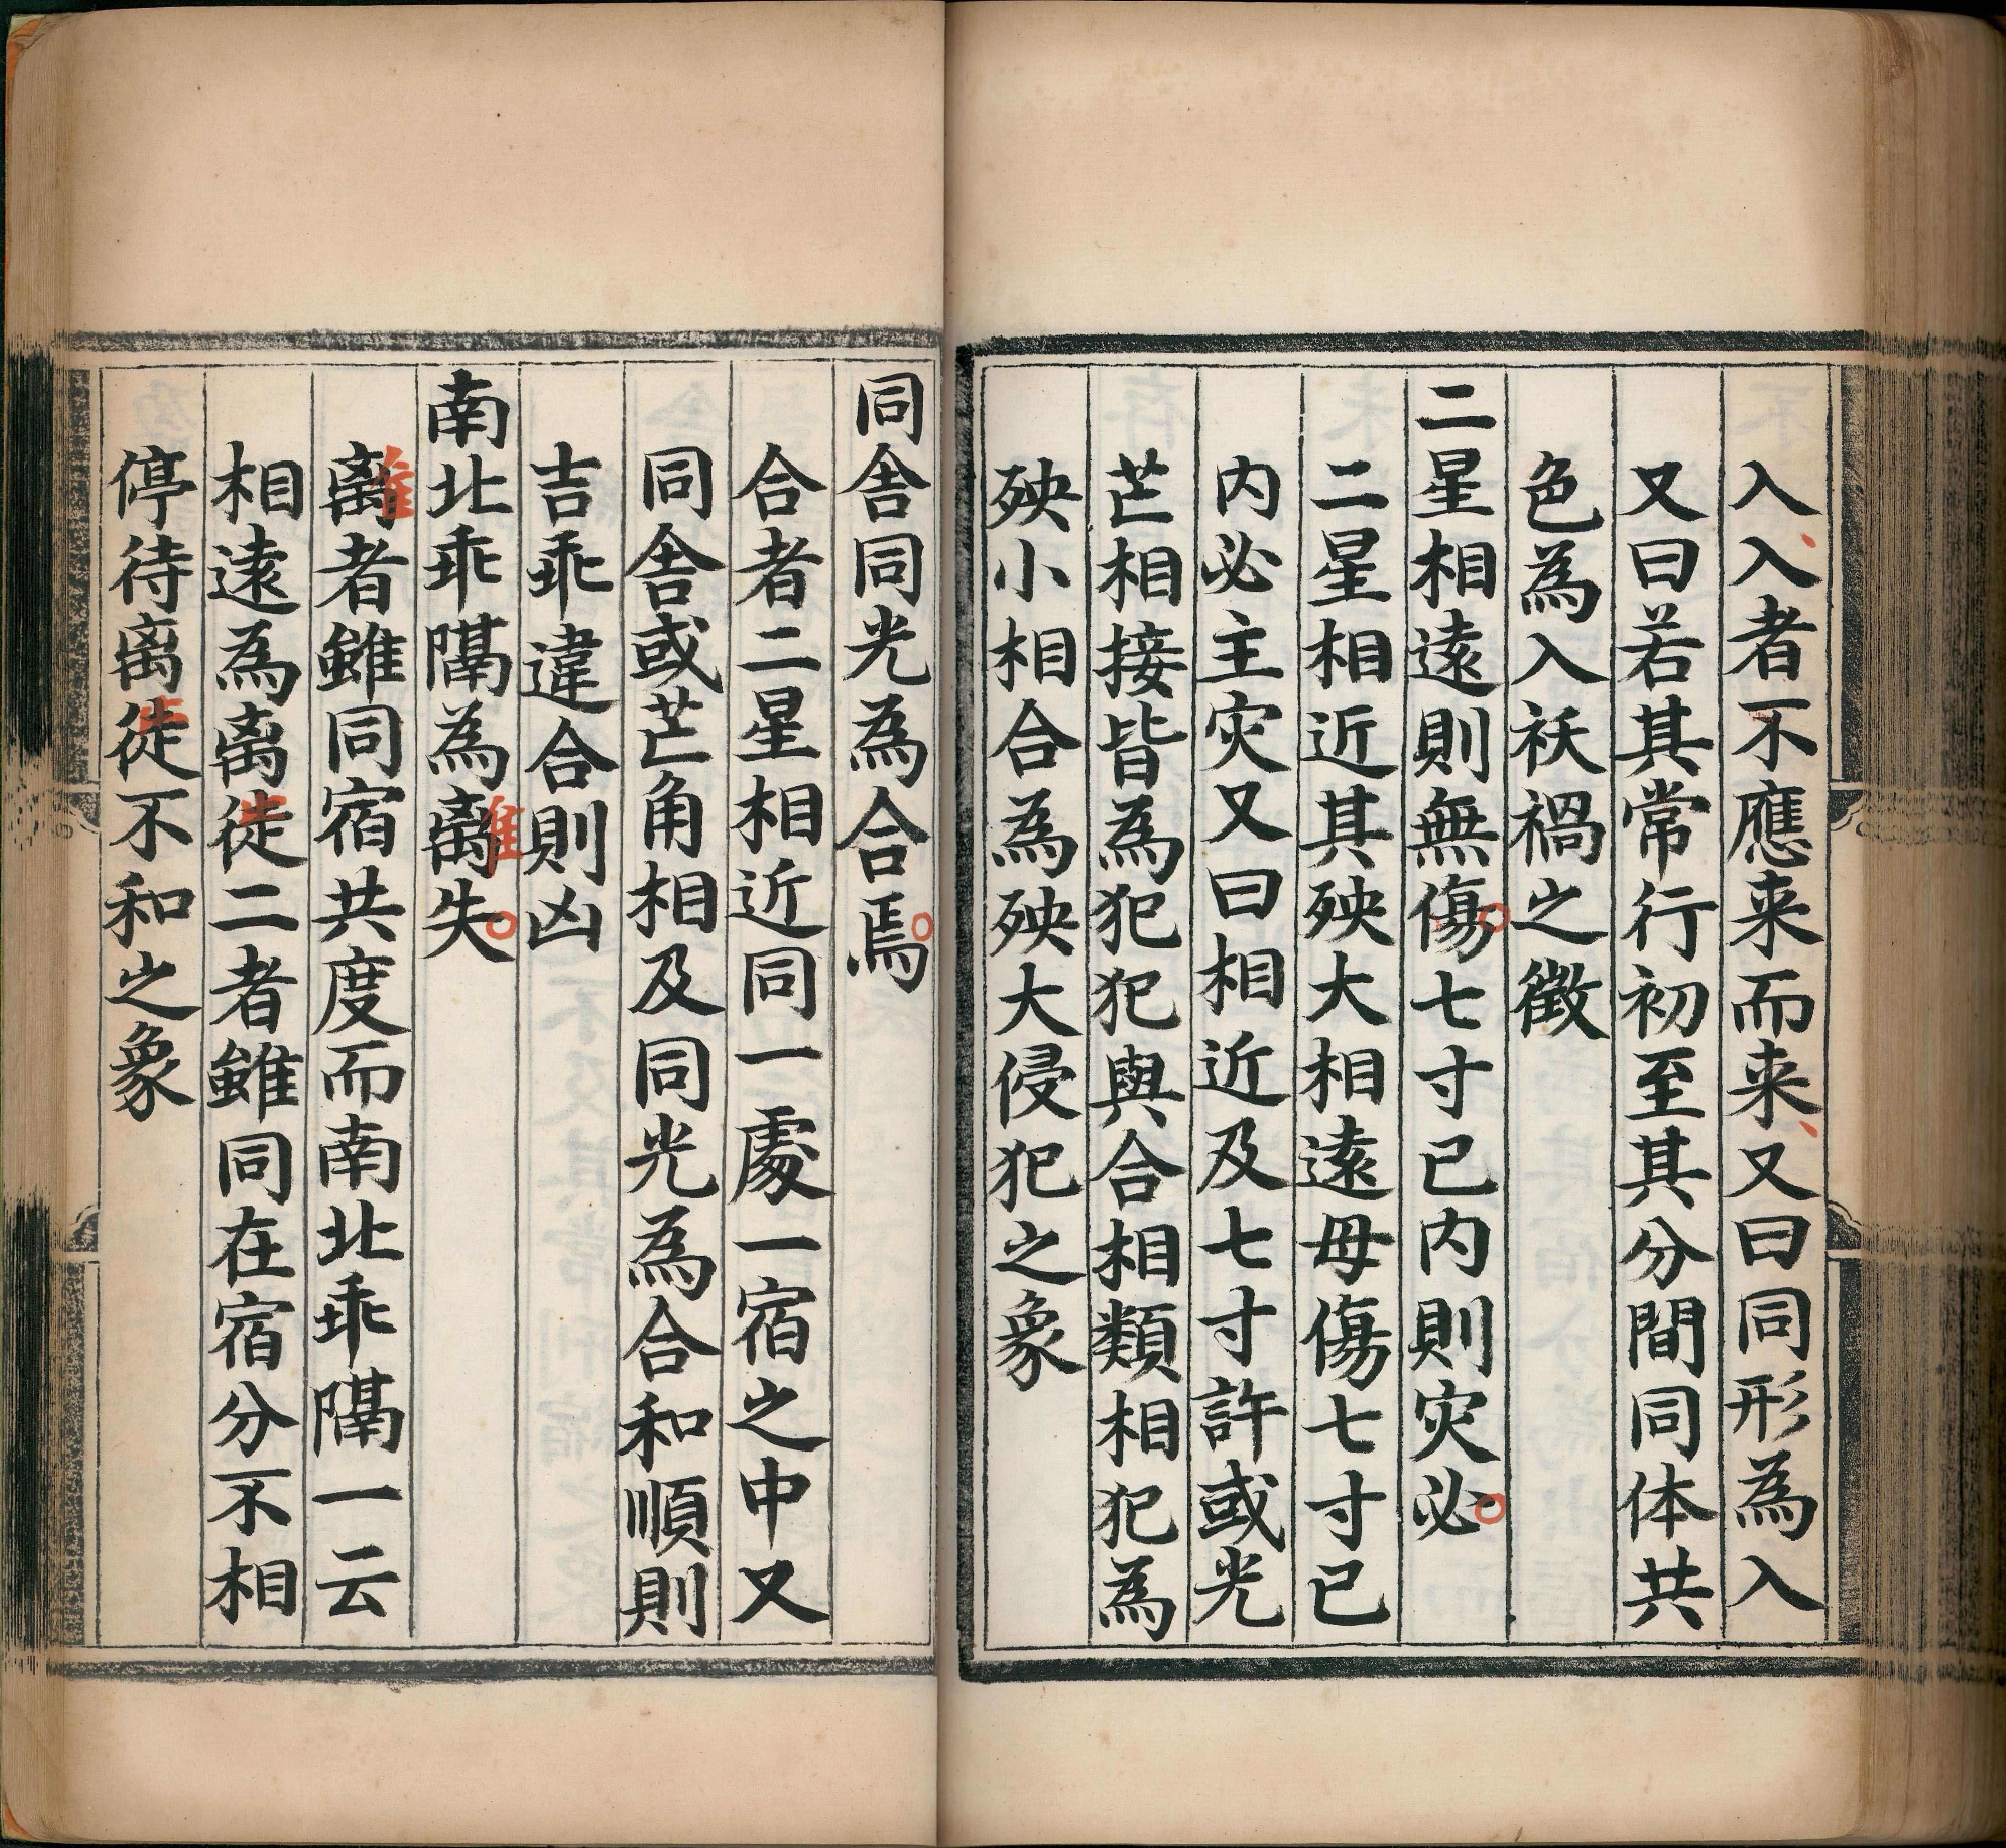 入入者不應来而来又曰同形為入
又曰若其常行初至其分間同体共
色為入袄禍之徴
二星相遠則無傷七寸已内則灾必
二星相近其殃大相遠毋傷七寸已
内必主灾又曰相近及七寸許或光
芒相接皆為犯犯與合相類相犯為
殃小相合為殃大侵犯之象
同舍同光為合焉
合者二星相近同一處一宿之中又
同舍或芒角相及同光為合和順則
吉乖違合則凶
南北乖隔為離失
離者雖同宿共度而南北乖隔一云
相遠為离徒二者雖同在宿分不相
停待离徒不和之象